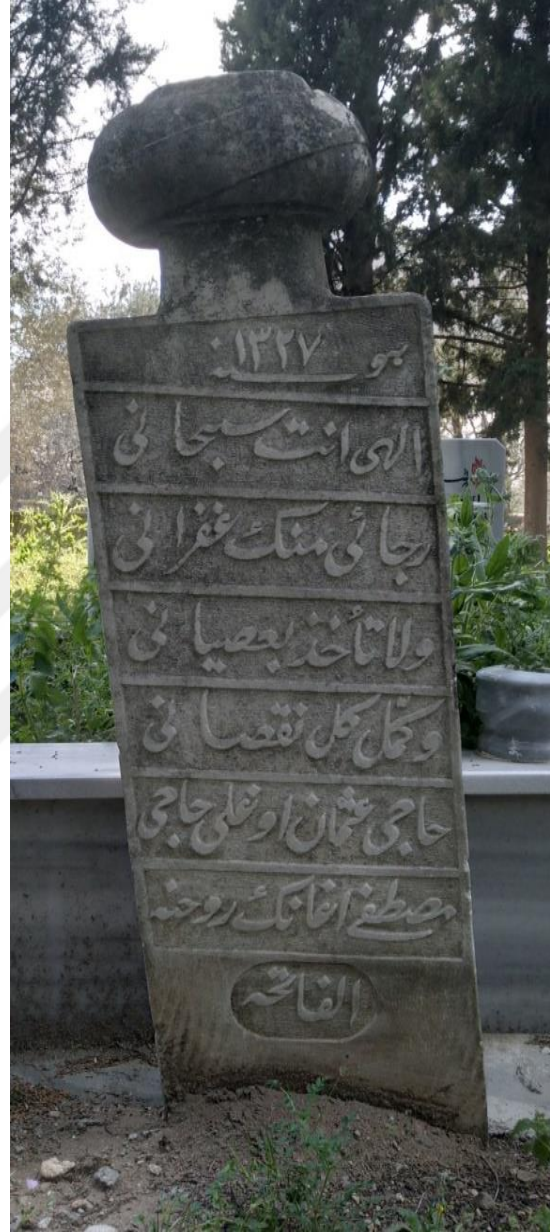 هو سنه ١٣٢٧
الهى انت سبحانى
رجائى منك غفرانى
ولا تأخذ بعصيانى
وكمل كل نقصانى
حاجى عثمان اوغلى حاجى
مصطفى اغانك روحنه
الفاتحه